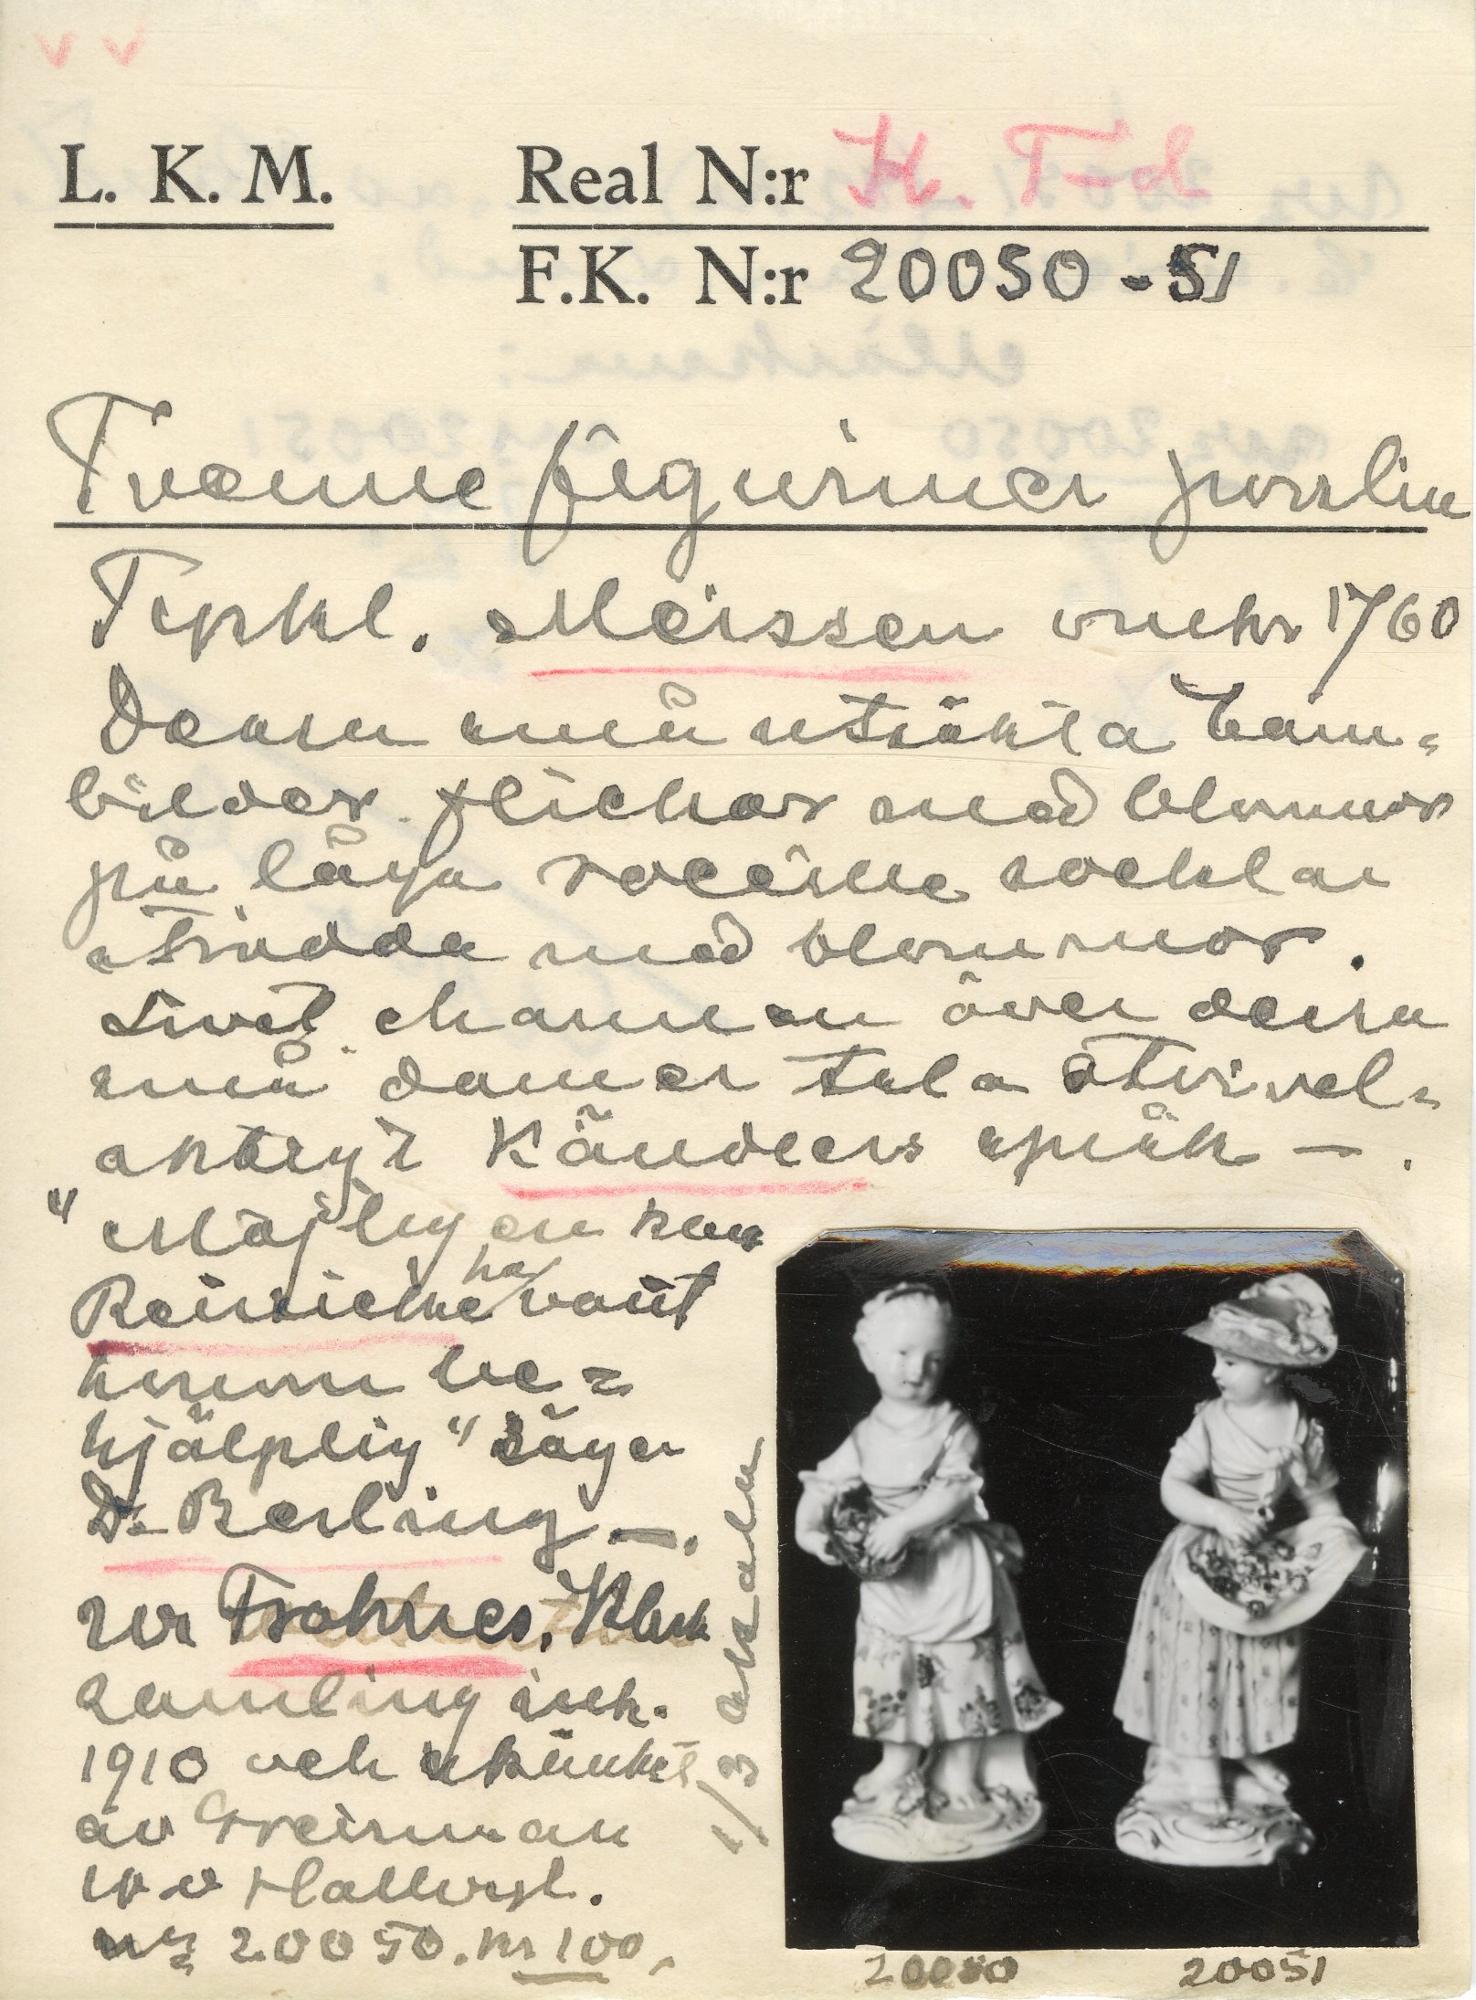 L. K. M.
Real N:r K. Fot
F.K. N:r 20050-51
Tvenne figuriner porslin
Tyskl. Meissen omkr 1760
Dessa små utsökta barn-
bilder flickor med blommor
på låga rocaille socklar
strödda med blommor.
Livet charmen över dessa
små damer tala otvivel-
aktigt Kändlers språk —.
"Möjligen kan
Reinicke ha varit
honom be=
hjälplig" säger
Dr Berling —.
ur Frohnes,
samling ink.
1910 och skänkt
av Grefvinnan
W v Hallwyl.
20050. kr 100,
1/3 skala
20050
20051